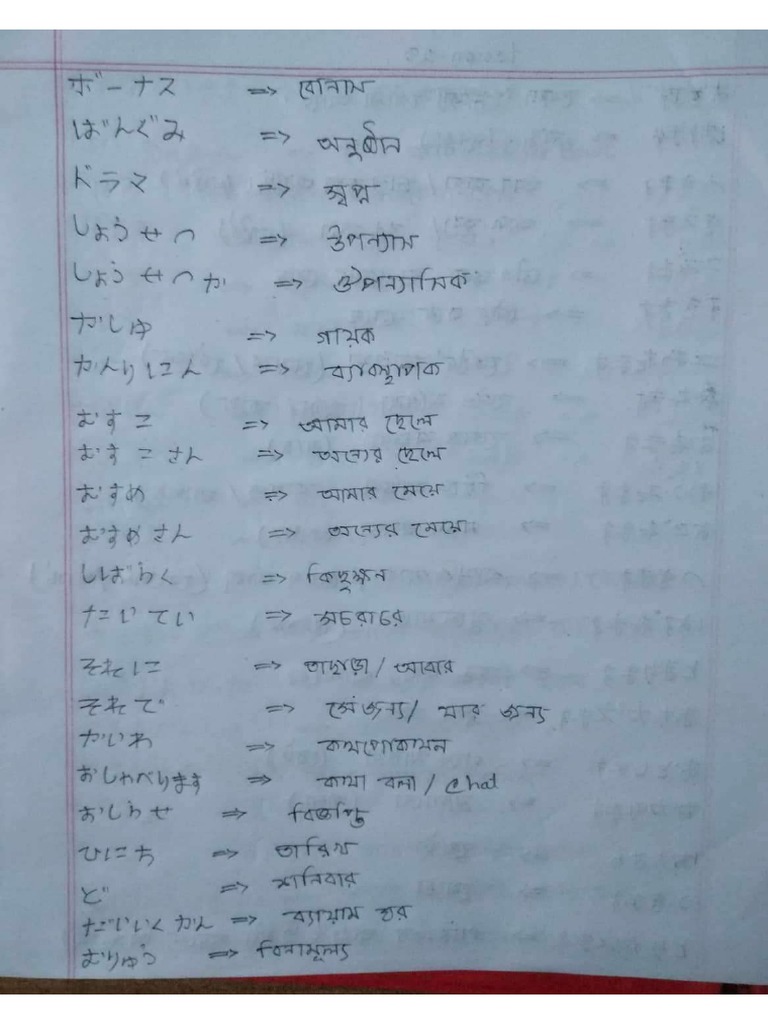 ボーナス => বোনাস
ばんぐみ => অনুষ্ঠান
ドラマ => স্বপ্ন
しょうせつ => উপন্যাস
しょうせつか => ঔপন্যাসিক
かしゅ => গায়ক
かんりにん => ব্যাবস্থাপক
むすこ => আমার ছেলে
むすこさん => অন্যের ছেলে
むすめ => আমার মেয়ে
むすめさん => অন্যের মেয়ে
しばらく => কিছুক্ষন
たいてい => সচরাচর
それに => তাছাড়া / আবার
それで => সেজন্য / যার জন্য
かいわ => কথপোকথন
おしゃべります => কথা বলা / chat
おしらせ => বিজ্ঞপ্তি
ひにち => তারিখ
ど => শনিবার
たいいくかん => ব্যায়াম ঘর
むりょう => বিনামূল্য